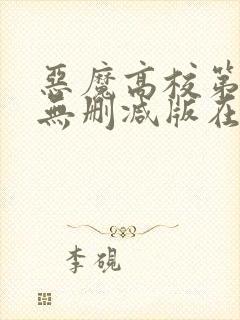 惡魔高校第
無刪減版在
李硯